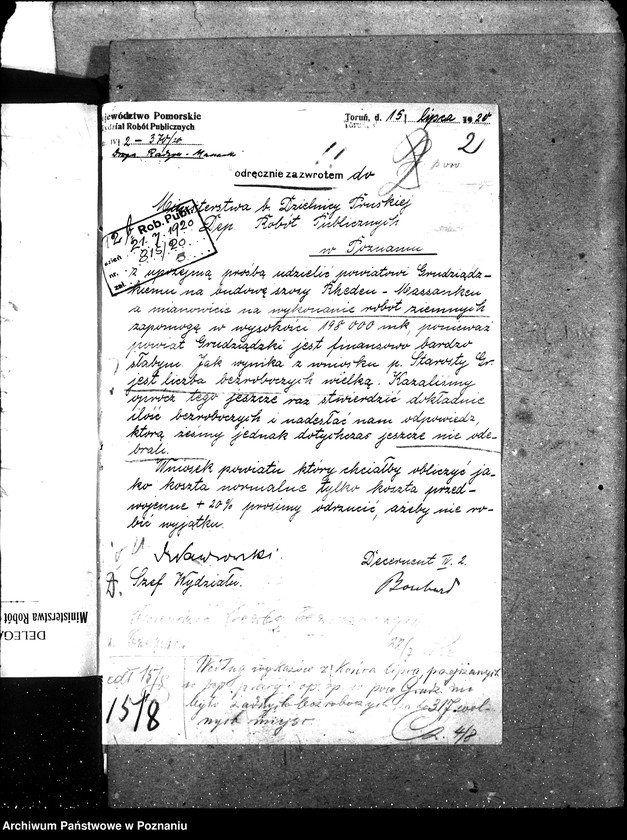 jewództwo Pomorskie
ydział Robót Publicznych
2 - 370/20
Toruń, d. 15 lipca 1920
2
!!
odręcznie za zwrotem do
Ministerstwa b. Dzielnicy Pruskiej
Dep Robót Publicznych
w Poznaniu
Rob. Publ.
21. 7. 1920
z uprzejmą prośbą udzielić powiatowi Grudziądz-
kiemu na budowę szosy Rheden - Massanken
a mianowicie na wykonanie robót ziemnych
zapomogę w wysokości 198 000 mk, ponieważ
powiat Grudziądzki jest finansowo bardzo
słabym. Jak wynika z wniosku p. Starosty Gr.
jest liczba bezroboczych wielką. Kazaliśmy
oprócz tego jeszcze raz stwierdzić dokładnie
ilość bezroboczych i nadesłać nam odpowiedz,
którą żeśmy jednak dotychczas jeszcze nie ode-
brali.
Wniosek powiatu który chciałby obliczyć ja-
ko koszta normalne tylko koszta przed-
wojenne + 20% prosimy odrzucić, ażeby nie ro-
bić wyjątku.
Decernent IV. 2.
Szef Wydziału.
Według wykazów z końca lipca
było żadnych bezroboczych 317 wol-
nych miejsc.
4/8
15/8
15/8
Ministerstwa Robót
DELEGA
Archiwum Państwowe w Poznaniu